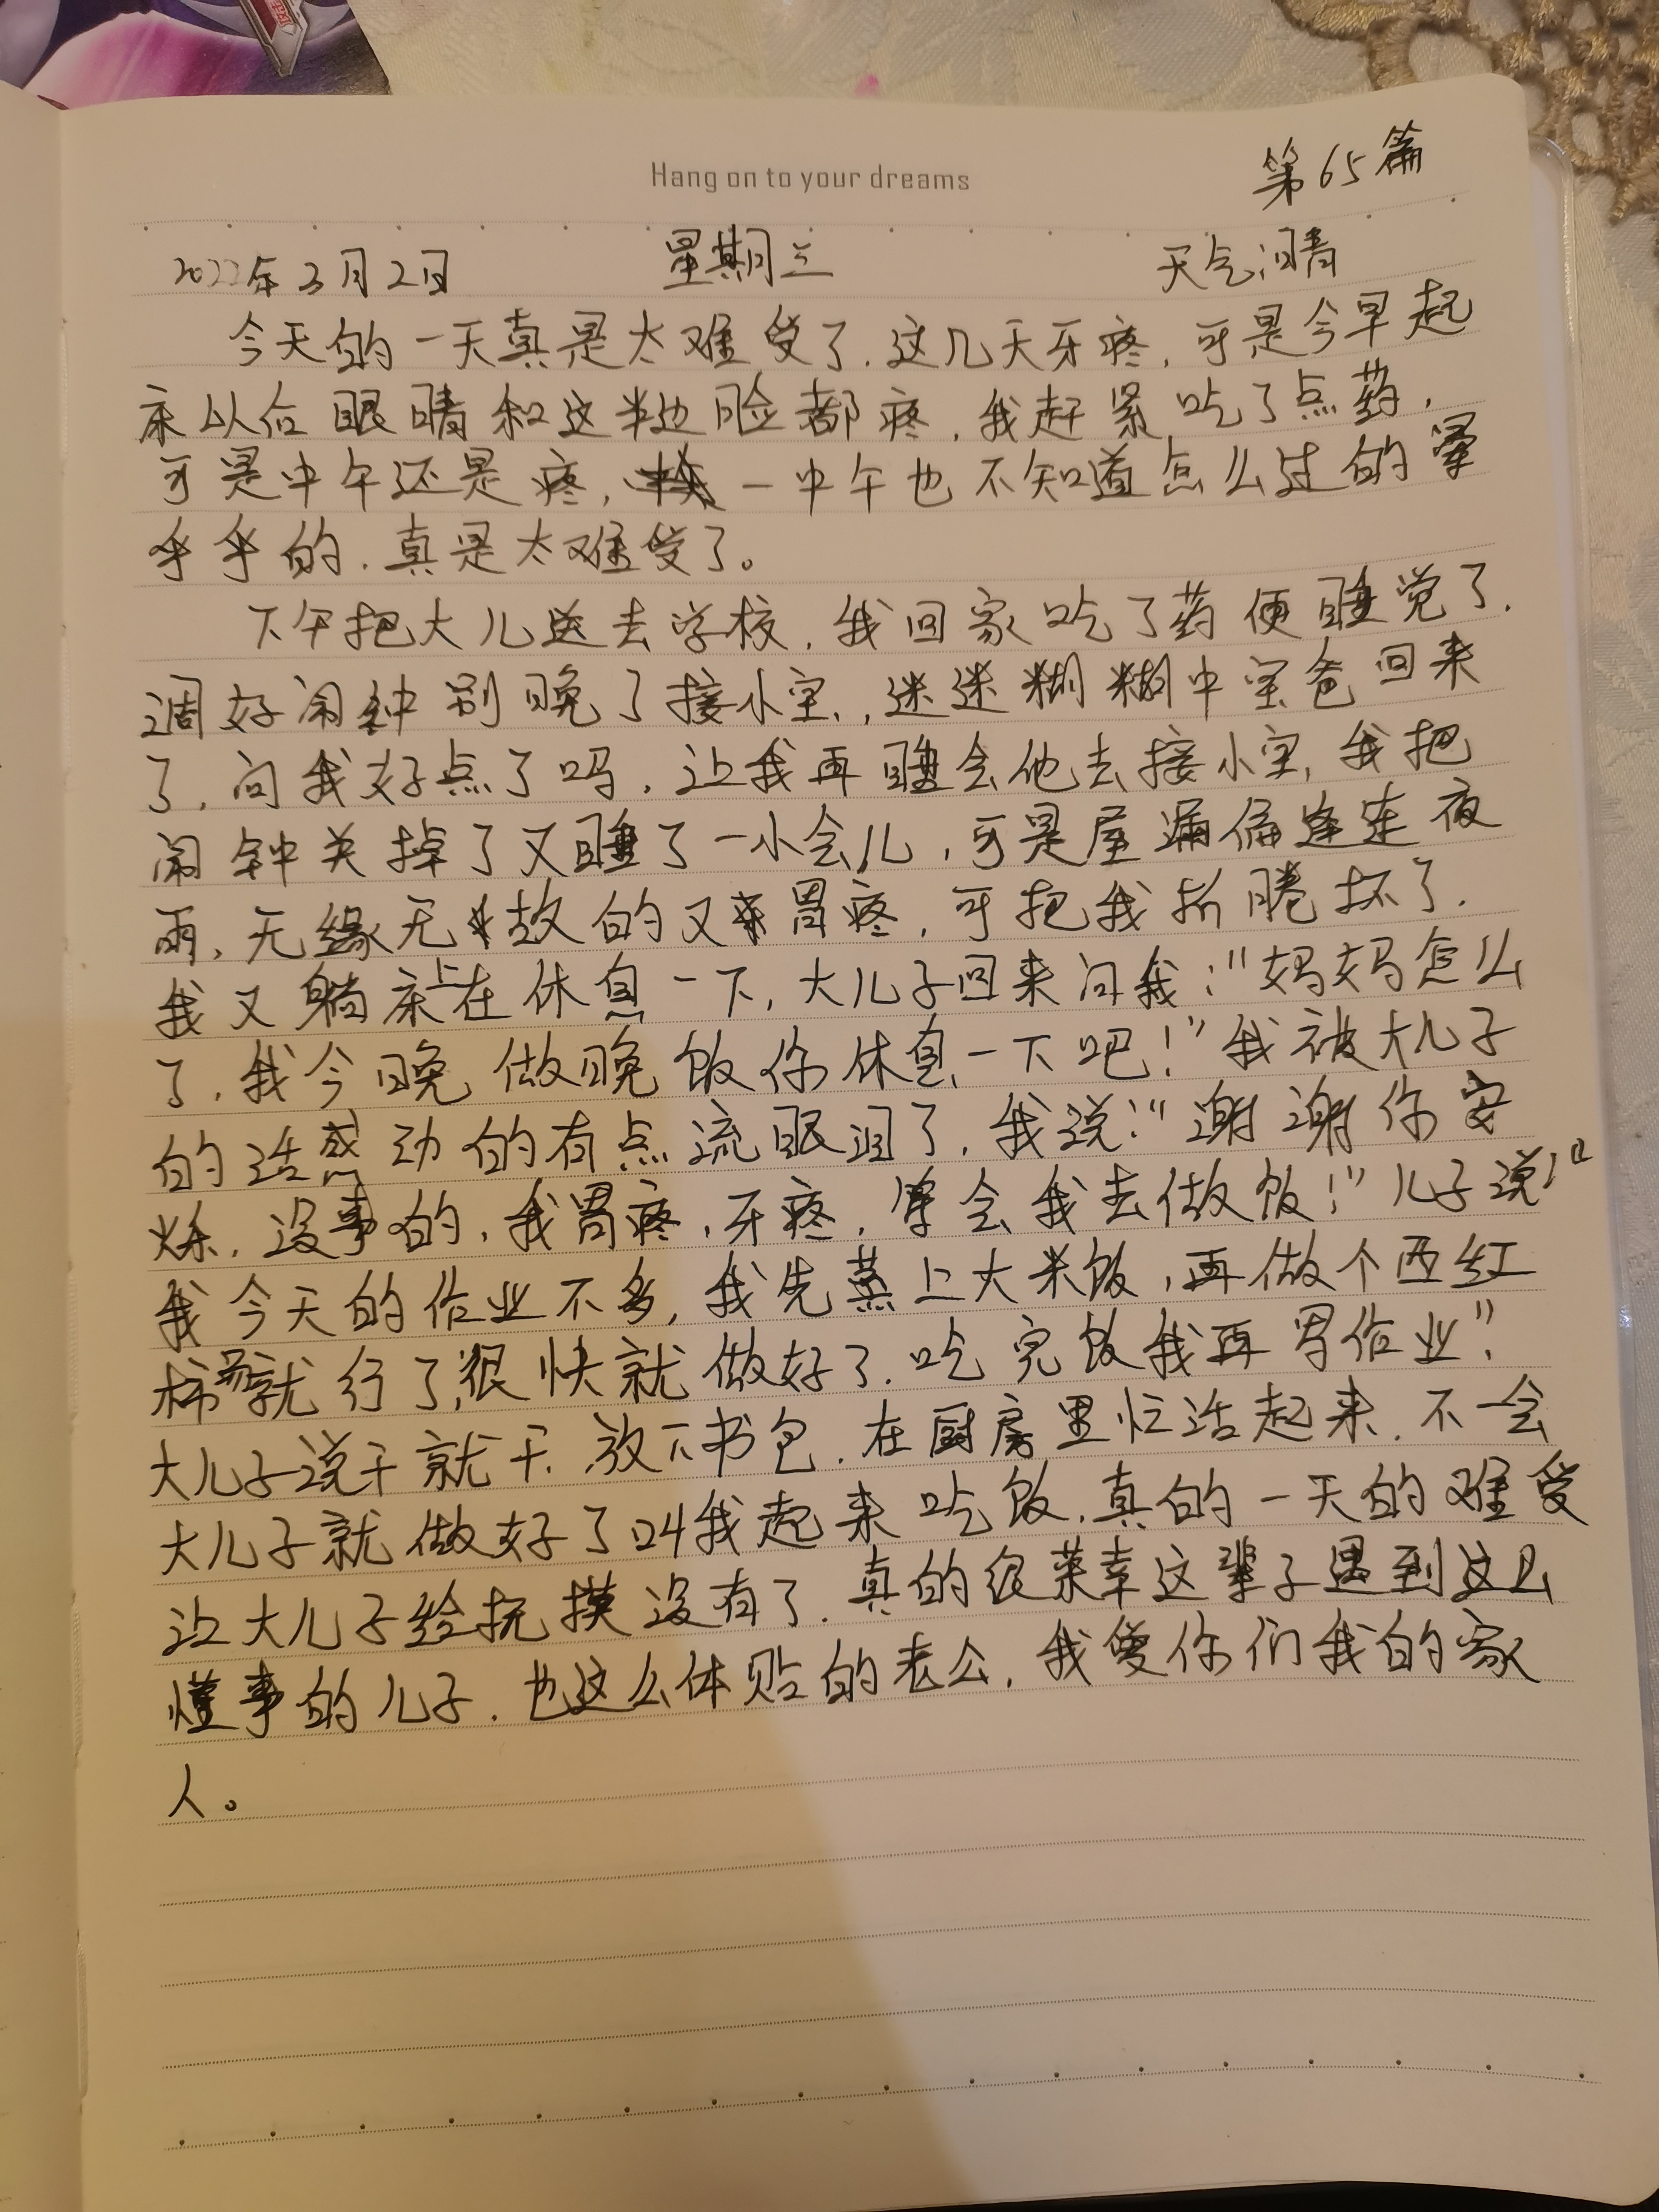 Hang on to your dreams
第65篇
2022年3月2日 星期三 天气晴
今天的一天真是太难受了.这几天牙疼,可是今早起
床以后眼睛和这半边脸都疼,我赶紧吃了点药,
可是中午还是疼,一中午也不知道怎么过的晕
乎乎的.真是太难受了。
下午把大儿送去学校,我回家吃了药便睡觉了.
调好闹钟别晚了接小宝,迷迷糊糊中宝爸回来
了.问我好点了吗.让我再睡会他去接小宝,我把
闹钟关掉了又睡了一小会儿,可是屋漏偏逢连夜
雨,无缘无故的又来胃疼,可把我折腾坏了.
我又躺床上在休息一下,大儿子回来问我:"妈妈怎么
了,我今晚做晚饭你休息一下吧!"我被大儿子
的话感动的有点流眼泪了,我说:"谢谢你安
烁,没事的,我胃疼,牙疼,等会我去做饭!"儿子说:"
我今天的作业不多,我先蒸上大米饭,再做个西红
柿就行了,很快就做好了.吃完饭我再写作业".
大儿子说干就干.放下书包.在厨房里忙活起来.不一会
大儿子就做好了叫我起来吃饭.真的一天的难受
让大儿子给抚摸没有了.真的很荣幸这辈子遇到这么
懂事的儿子.也这么体贴的老公,我爱你们我的家
人。